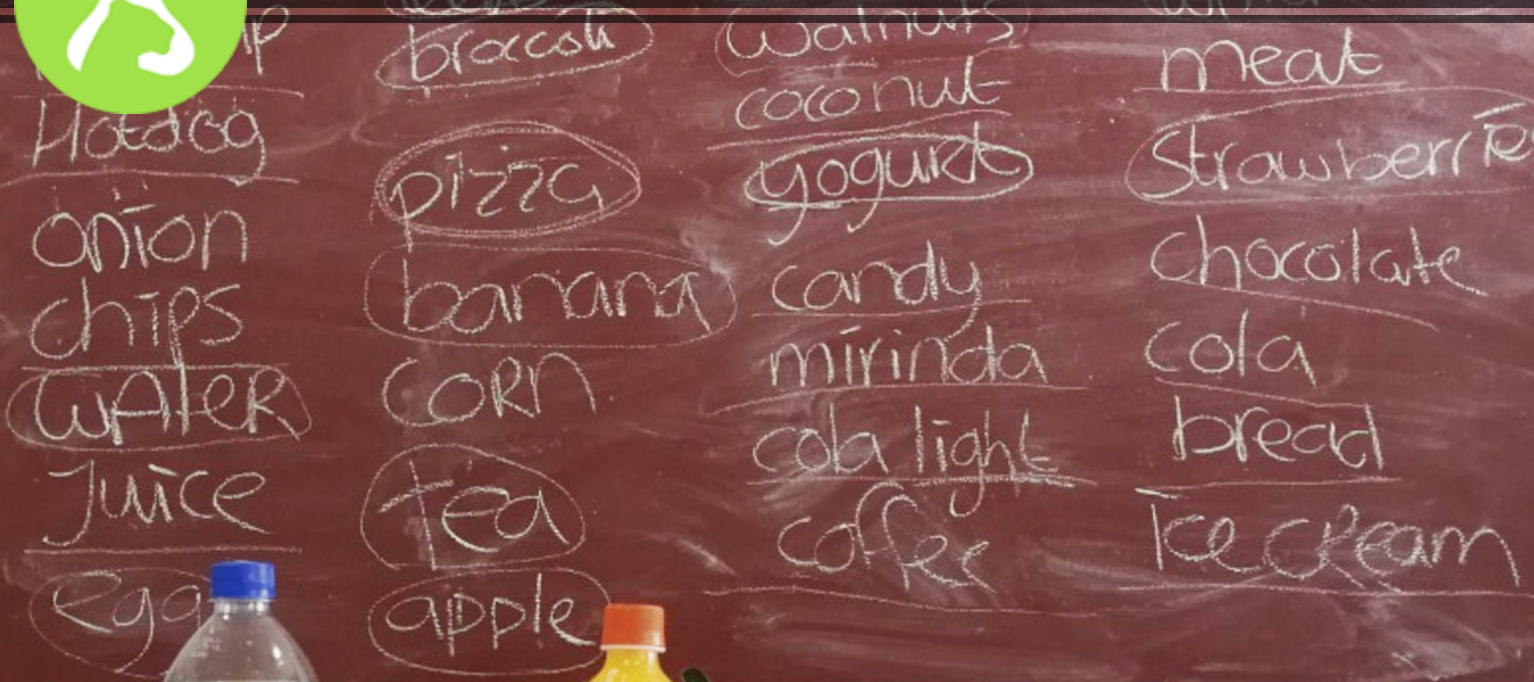 Hotdog
onion
chips
WAteR
Juice
egg
broccoli
pizza
banana
CORN
tea
apple
walnuts
coconut
yogurt
candy
mirinda
cola light
coffee
meat
strawberries
chocolate
cola
bread
Ice cream